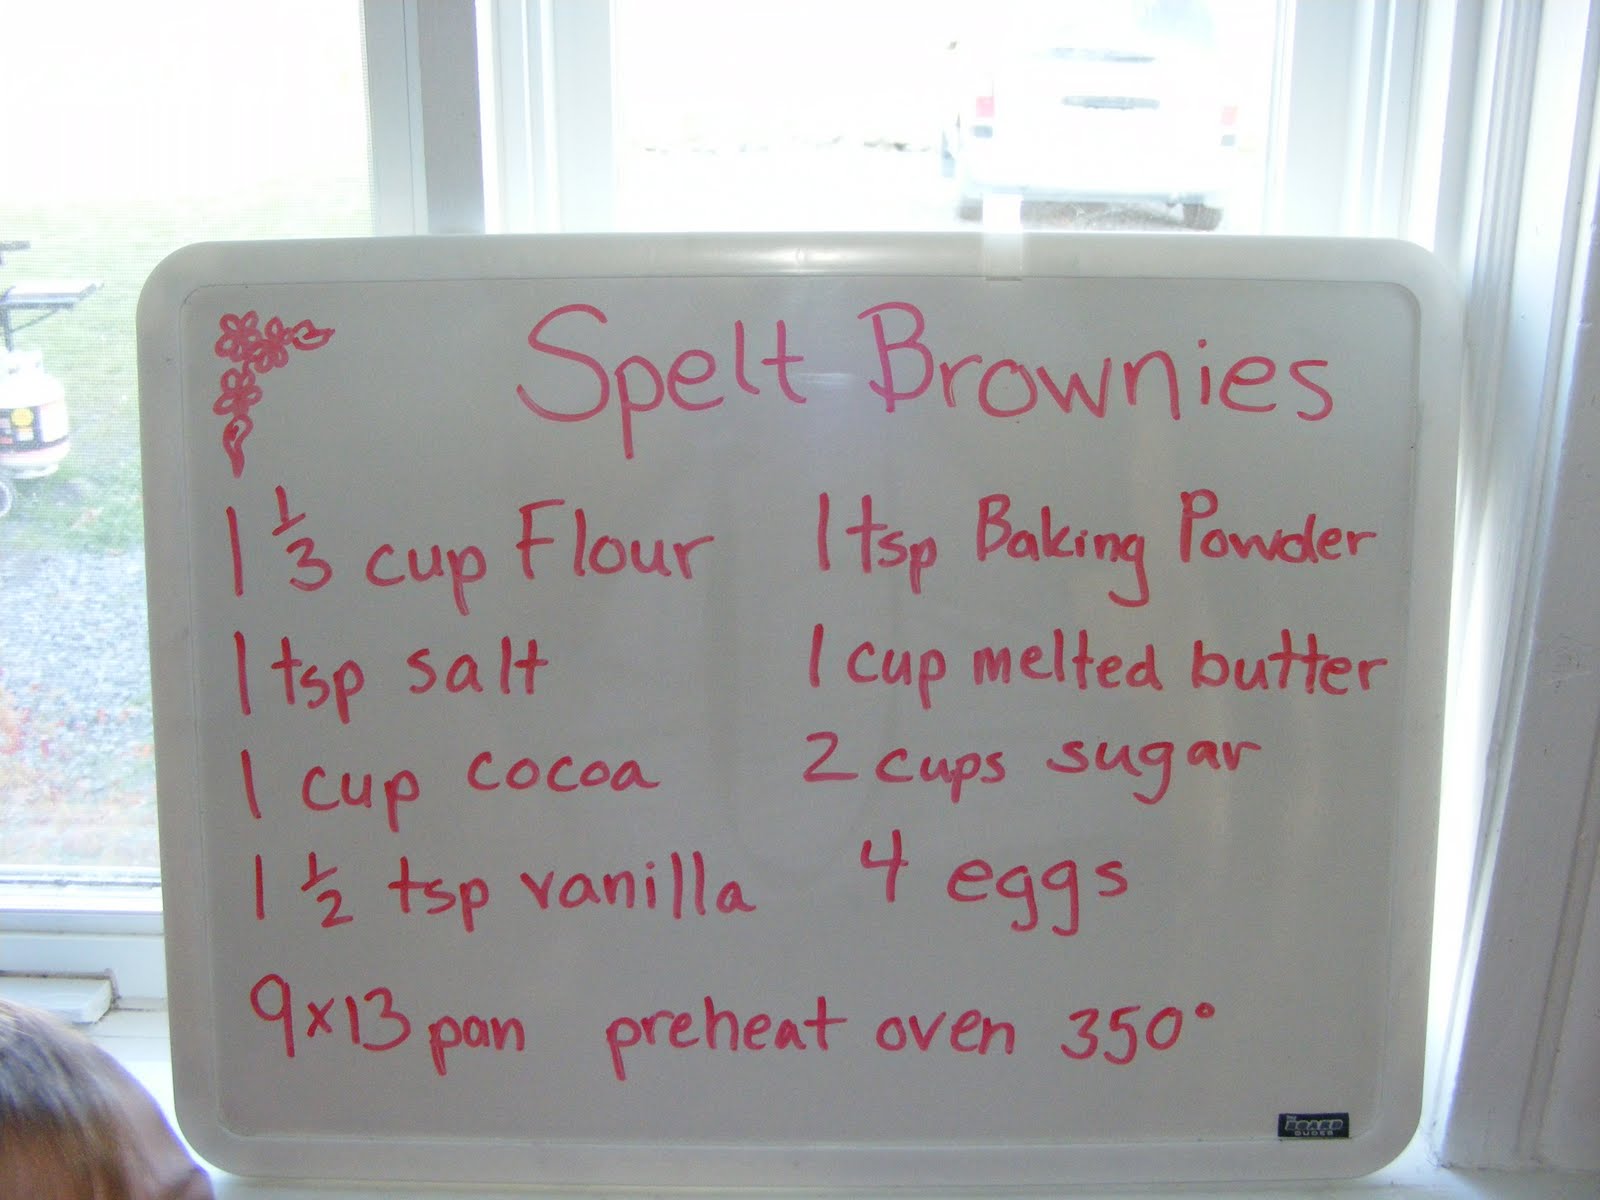 Spelt Brownies
1 1/3 cup Flour
1 tsp Baking Powder
1 tsp salt
1 cup melted butter
1 cup cocoa
2 cups sugar
1 1/2 tsp vanilla
4 eggs
9x13 pan preheat oven 350°
The
BOARD
DUDES